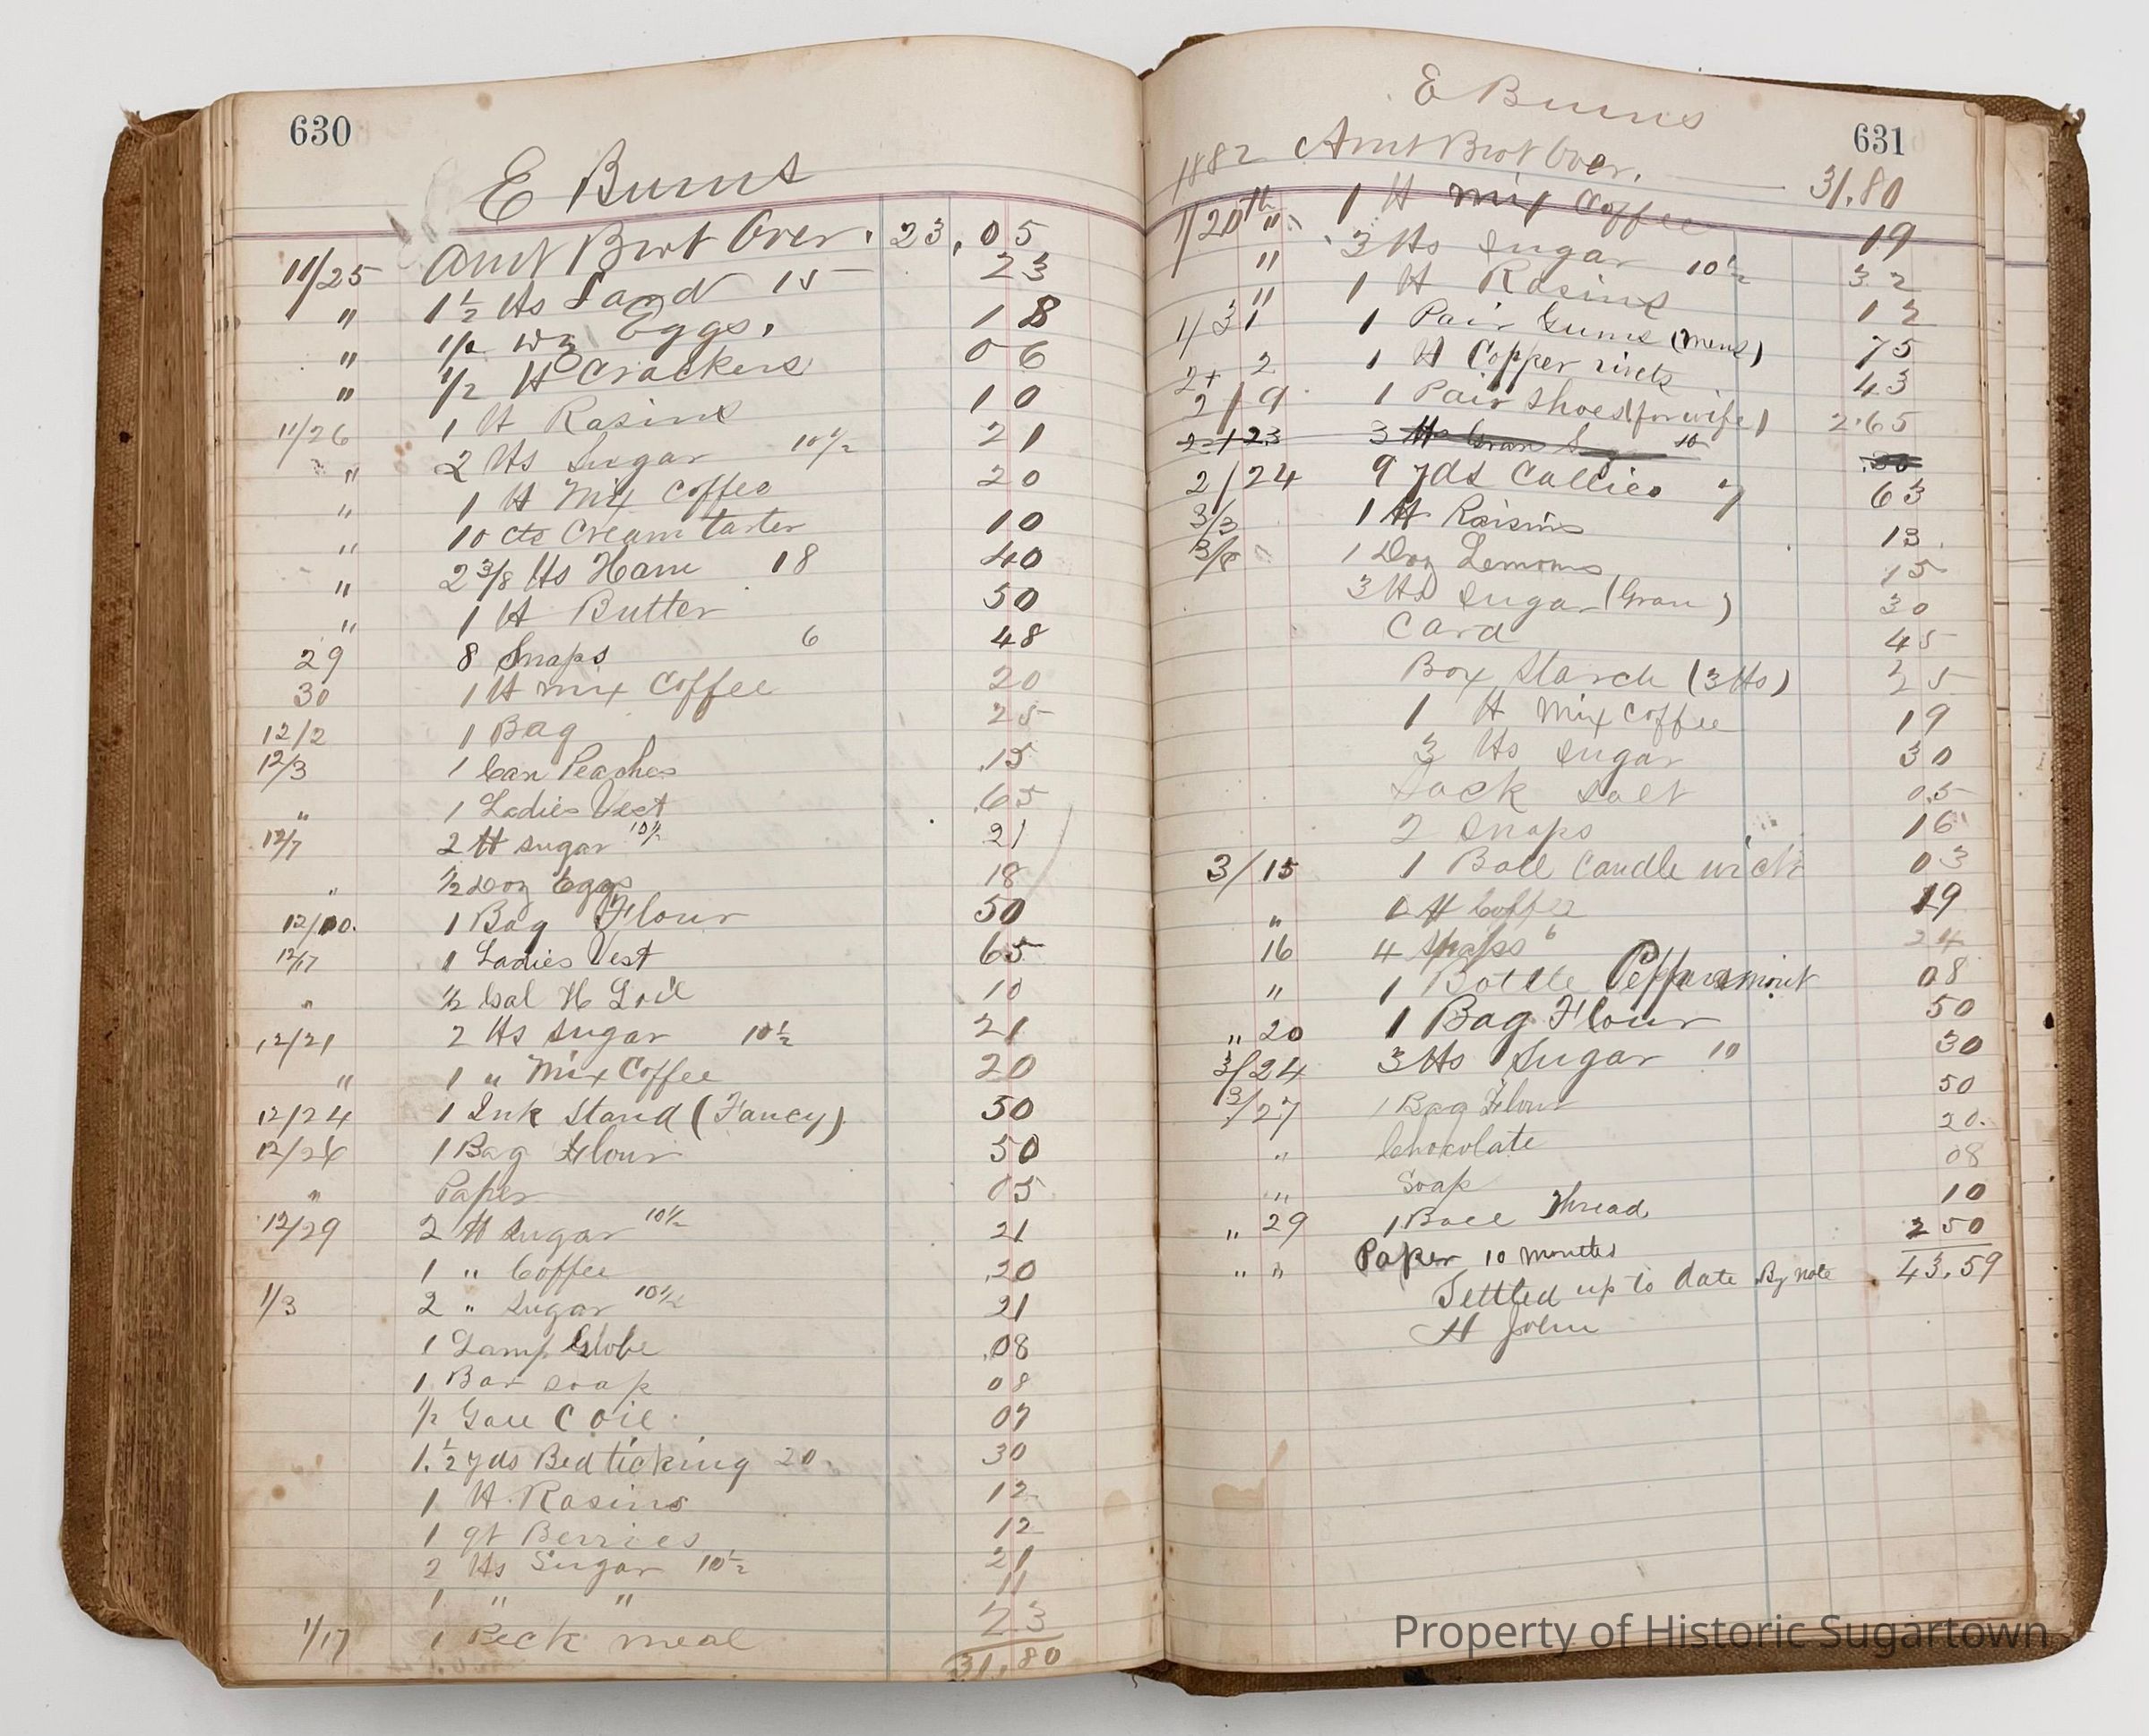 630
E Burns
Amt Brot Over. 23.05
11/25 1 1/2 lbs Lard 15 23
" 1/2 Doz Eggs. 18
" 1/2 lb Crackers 06
" 1 lb Rasins 10
11/26 2 lbs Sugar 10 1/2 21
" 1 lb Mix Coffee 20
" 10 cts Cream tarter 10
" 2 3/8 lbs Ham 18 40
" 1 lb Butter 50
29 8 Snaps 6 48
30 1 lb mix Coffee 20
12/2 1 Bag 25
12/3 1 Can Peaches .15
" 1 Ladies Vest .65
12/7 2 lb sugar 10 1/2 21
" 1/2 Doz Eggs 18
12/10. 1 Bag Flour 50
12/17 1 Ladies Vest 65
" 1/2 Gal H L oil 10
12/21 2 lbs sugar 10 1/2 21
" 1 " Mix Coffee 20
12/24 1 Ink Stand (Fancy) 50
12/26 1 Bag Flour 50
" Paper 05
12/29 2 lb sugar 10 1/2 21
1 " Coffee .20
1/3 2 " sugar 10 1/2 21
1 Lamp Globe .08
1 Bar soap 08
1/2 Gall C oil 07
1. 1/2 yds Bed ticking 20 30
1 lb Rasins 12
1 qt Berries 12
2 lbs Sugar 10 1/2 21
1 " " 11
1/17 1 Peck meal 23
31.80
E Burns
631
1882 Amt Brot Over. 31.80
1/20th " 1 lb mix Coffee 19
" 3 lbs sugar 10 1/2 32
" 1 lb Rasins 12
1/31 1 Pair Gums (mens) 75
2+ 2 1 lb Copper rivets 43
2/9 1 Pair shoes (for wife) 2.65
2+23 3 lbs Gran 10
2/24 9 yds Callico 7 63
3/3 1 lb Raisins 13
3/8 1 Doz Lemons 15
3 lbs sugar (Gran) 30
Card 45
Box Starch (3 lbs) 25
1 lb Mix Coffee 19
3 lbs sugar 30
Sack Salt 05
2 snaps 16
3/15 1 Ball Candle wick 03
" 1 lb Coffee 19
16 4 snaps 6 24
" 1 Bottle Peppermint 08
" 20 1 Bag Flour 50
3/24 3 lbs Sugar 10 30
3/27 1 Bag Flour 50
" Chocolate 20.
" Soap 08
" 29 1 Ball Thread 10
" " Paper 10 months 2 50
Settled up to date By note 43.59
H John
Property of Historic Sugartown